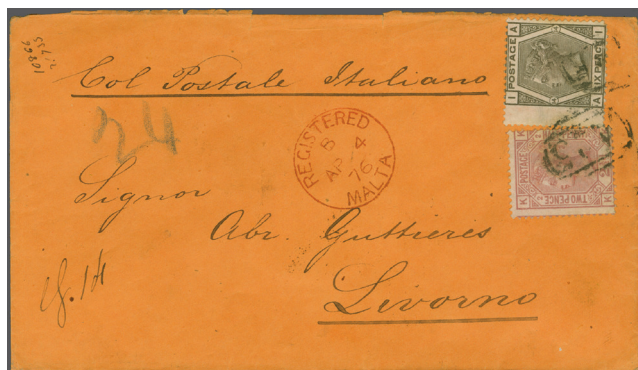 10866
Col Postale Italiano
I POSTAGE A
A SIX PENCE I
24
REGISTERED
B 4
AP
76
MALTA
K POSTAGE
K TWO PENCE K
Signor
Abr. Guttieres
Livorno